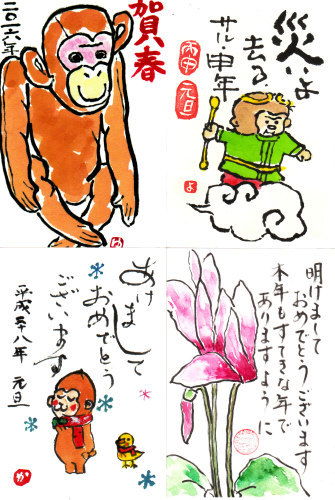 賀春
二〇一六年
ゆ
災いよ
去る
サル・申年
丙申 元旦
よ
あけまして
おめでとう
ございます
平成二十八年 元旦
か
明けまして
おめでとうございます
本年もすてきな年で
ありますように